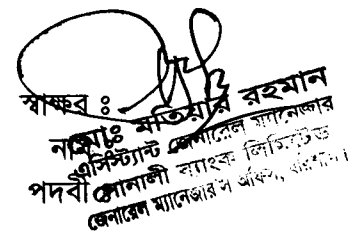 স্বাক্ষর ঃ
নামঃ মতিয়ার রহমান
এসিস্ট্যান্ট জেনারেল ম্যানেজার
পদবী সোনালী ব্যাংক লিমিটেড
জেনারেল ম্যানেজার'স অফিস, বরিশাল।